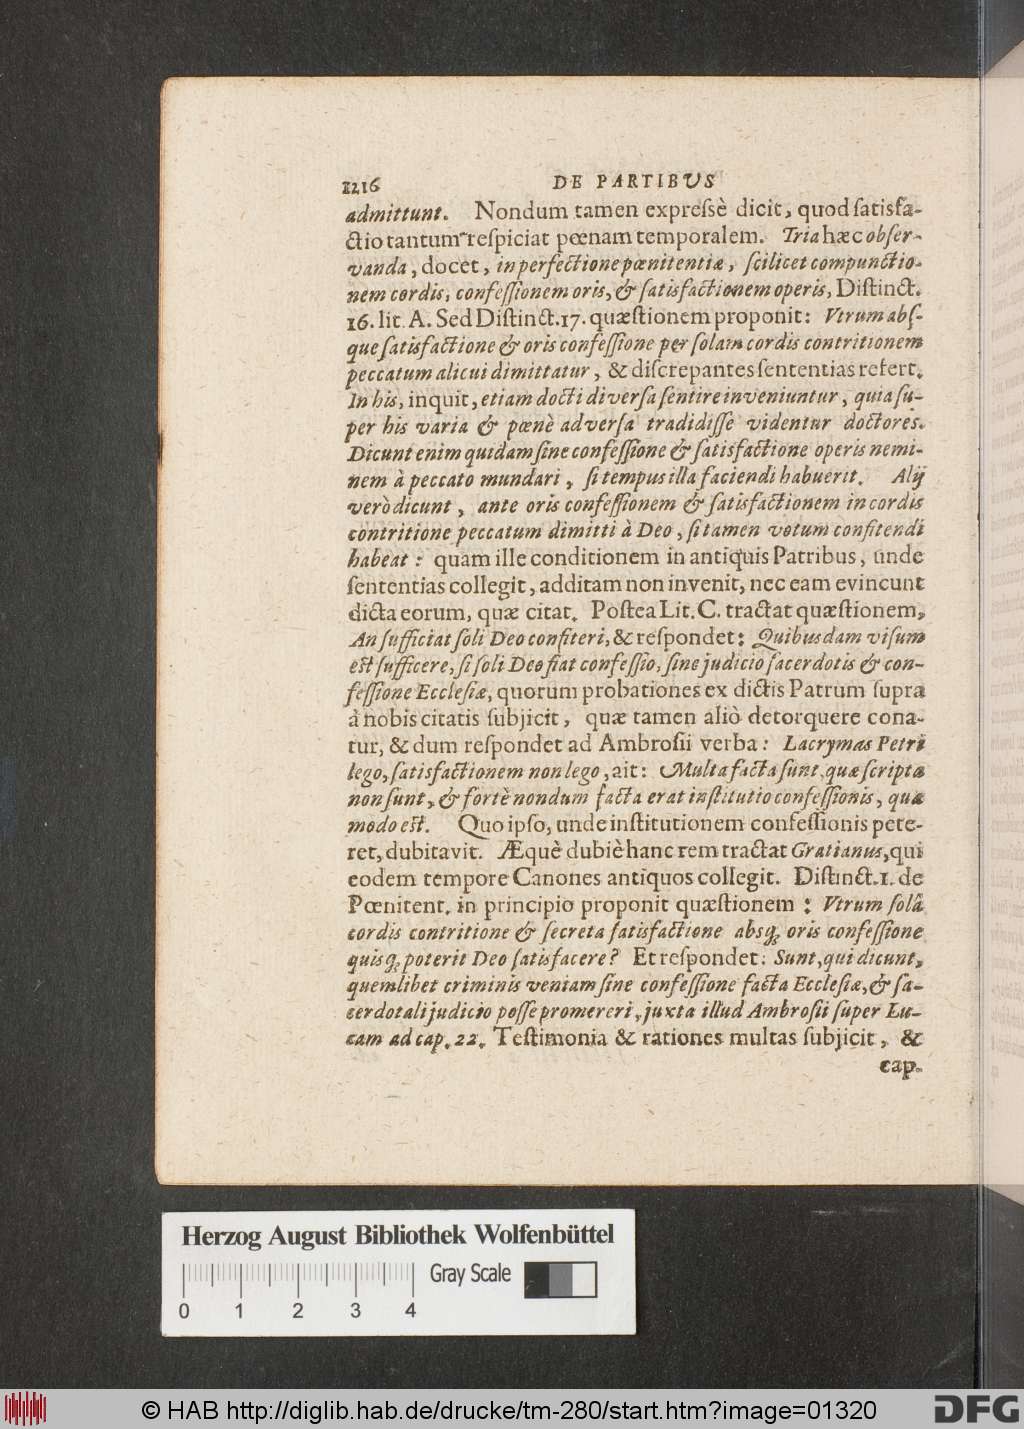 1216 DE PARTIBVS
admittunt. Nondum tamen expreſsè dicit, quod ſatisfa-
ctio tantum reſpiciat pœnam temporalem. Tria hæc obſer-
vanda, docet, in perfectione pœnitentiæ, ſcilicet compunctio-
nem cordis, confeſſionem oris, & ſatisfactionem operis, Diſtinct.
16. lit. A. Sed Diſtinct. 17. quæſtionem proponit: Vtrum abſ-
que ſatisfactione & oris confeſſione per ſolam cordis contritionem
peccatum alicui dimittatur, & diſcrepantes ſententias refert.
In his, inquit, etiam docti diverſa ſentire inveniuntur, quia ſu-
per his varia & pœnè adverſa tradidiſſe videntur doctores.
Dicunt enim quidam ſine confeſſione & ſatisfactione operis nemi-
nem à peccato mundari, ſi tempus illa faciendi habuerit. Alij
verò dicunt, ante oris confeſſionem & ſatisfactionem in cordis
contritione peccatum dimitti à Deo, ſi tamen votum confitendi
habeat: quam ille conditionem in antiquis Patribus, unde
ſententias collegit, additam non invenit, nec eam evincunt
dicta eorum, quæ citat. Poſtea Lit. C. tractat quæſtionem,
An ſufficiat ſoli Deo confiteri, & reſpondet: Quibusdam viſum
eſt ſufficere, ſi ſoli Deo fiat confeſſio, ſine judicio ſacerdotis & con-
feſſione Eccleſiæ, quorum probationes ex dictis Patrum ſupra
à nobis citatis ſubjicit, quæ tamen aliò detorquere cona-
tur, & dum reſpondet ad Ambroſii verba: Lacrymas Petri
lego, ſatisfactionem non lego, ait: Multa facta ſunt, quæ ſcripta
non ſunt, & fortè nondum facta erat inſtitutio confeſſionis, quæ
modo eſt. Quo ipſo, unde inſtitutionem confeſſionis pete-
ret, dubitavit. Æquè dubiè hanc rem tractat Gratianus, qui
eodem tempore Canones antiquos collegit. Diſtinct. 1. de
Pœnitent. in principio proponit quæſtionem: Vtrum ſolâ
cordis contritione & ſecreta ſatisfactione absq; oris confeſſione
quisq; poterit Deo ſatisfacere? Et reſpondet: Sunt, qui dicunt,
quemlibet criminis veniam ſine confeſſione facta Eccleſiæ, & ſa-
cerdotali judicio poſſe promereri, juxta illud Ambroſii ſuper Lu-
cam ad cap. 22. Teſtimonia & rationes multas ſubjicit, &
cap.
Herzog August Bibliothek Wolfenbüttel
Gray Scale
0 1 2 3 4
© HAB http://diglib.hab.de/drucke/tm-280/start.htm?image=01320
DFG